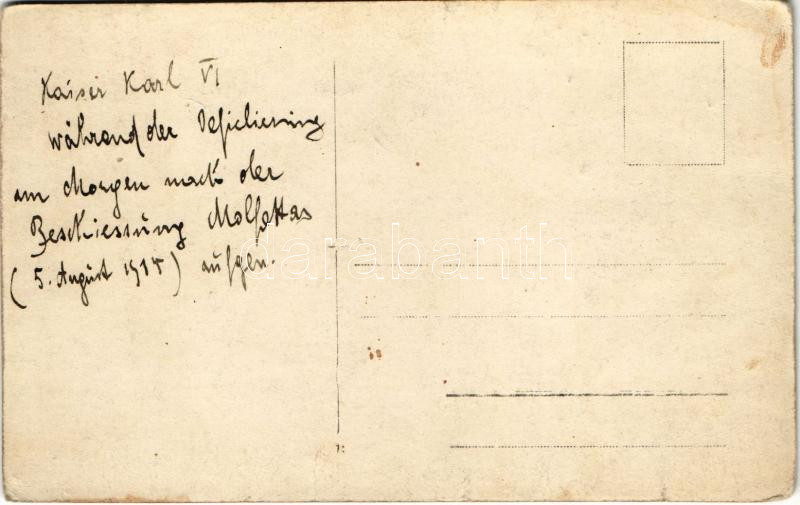 Kaiser Karl VI
während der Defilierung
am Morgen nach der
Beschiessung Molfettas
(5. August 1915) aufgen.
darabanth